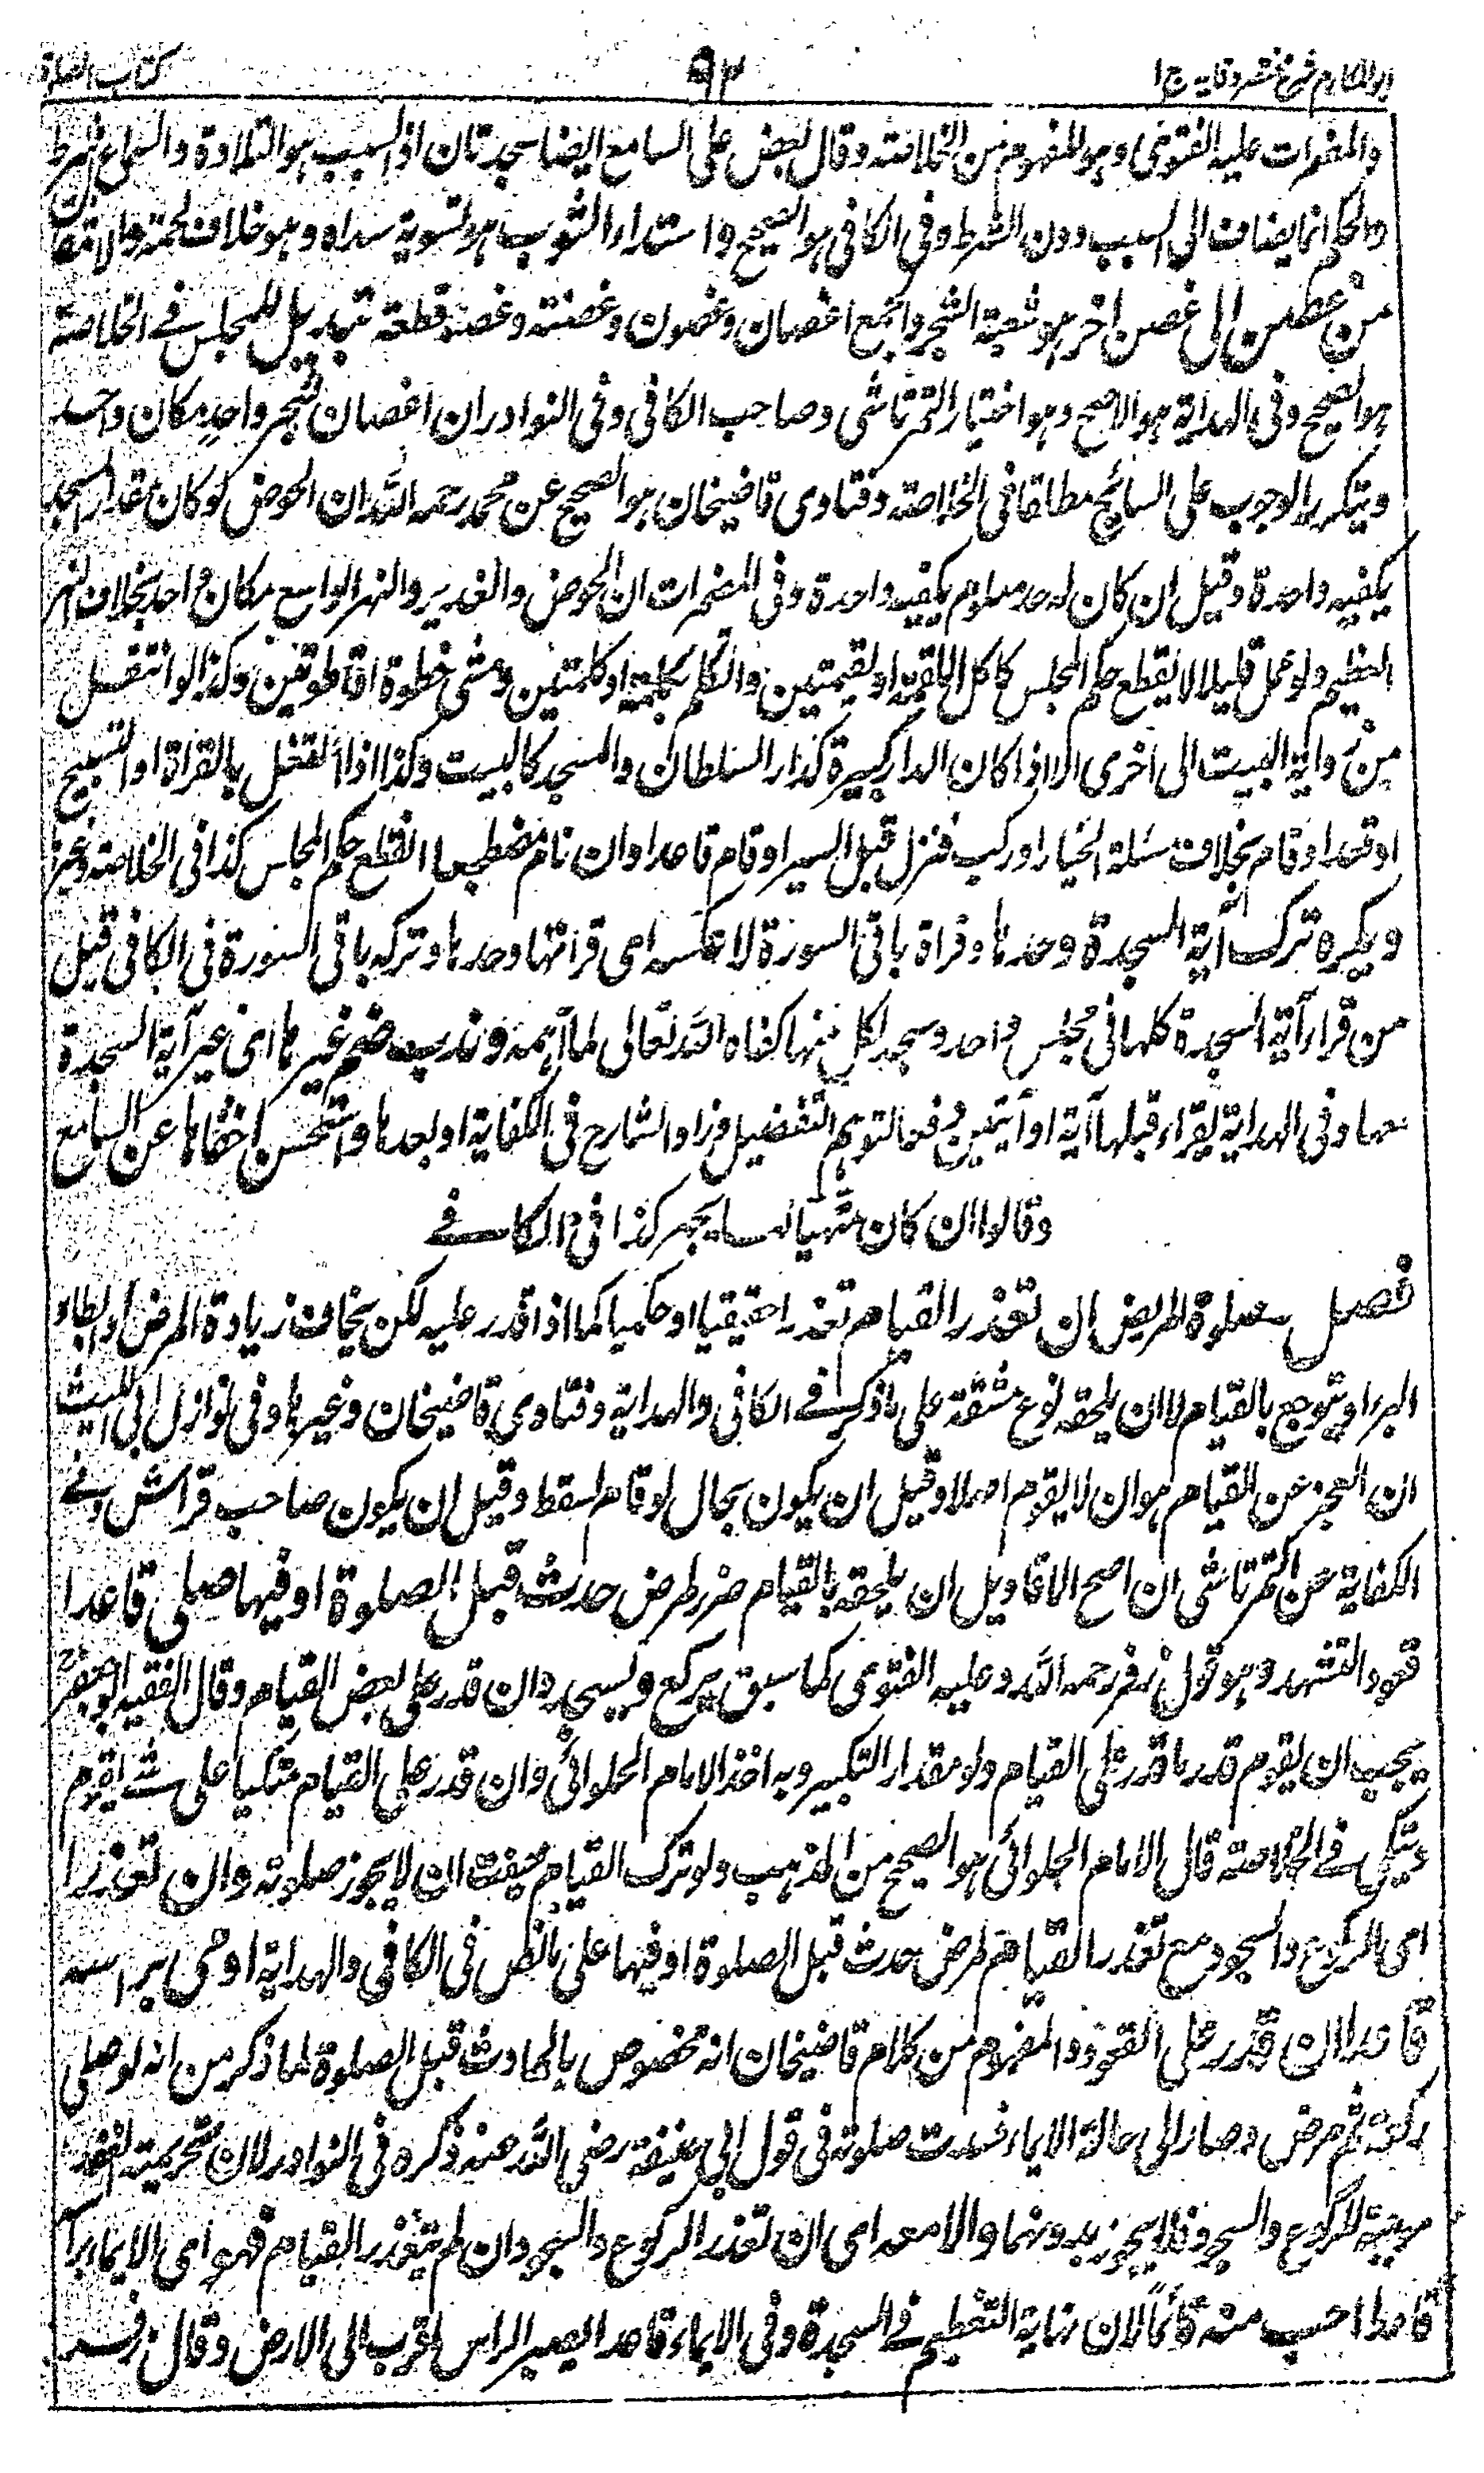 ابو المكارم شرح مختصر وقايه ج ا ٩٣ كتاب الصلوة
والمضمرات عليه الفتوى وهو المفهوم من الخلاصة وقال بعض على السامع ايضا سجدتان اذ السبب هو التلاوة والسماع شرط
والحكم انما يضاف الى السبب دون الشرط وفى الكافى هو الصحيح واستداء الثوب هو تسوية سداه وهو خلاف لحمته والانتقال
من غصن الى غصن اخر هو شعبة الشجر والجمع اغصان وغصون وغصنة وغصنة قطعة تبديل للمجلس فے الخلاصة
هو الصحيح وفى الهداية هو الاصح وهو اختيار التمرتاشى وصاحب الكافى وفى النوادر ان اغصان شجر واحد مكان واحد
ويتكرر الوجوب على السابح مطلقا فى الخلاصة وفتاوى قاضيخان هو الصحيح عن محمد رحمه الله ان الحوض لو كان مقدار المسجد
يكفيه واحدة وقيل ان كان له حد معلوم يكفيه واحدة وفى المضمرات ان الحوض والغدير والنهر الواسع مكان واحد بخلاف النهر
العظيم ولو عمل قليلا لا يقطع حكم المجلس كاكل اللقمة او لقيمتين والتكلم بكلمة او كلمتين ومشى خطوة او خطوتين وكذا لو انتقل
من زواية البيت الى اخرى الا اذا كان الدار كبيرة كدار السلطان والمسجد كالبيت وكذا اذا اشتغل بالقراة او التسبيح
او قعد او قام بخلاف مسئلة الخيار او ركب فنزل قبل السير او قام قاعدا وان نام مضطجعا انقطع حكم المجلس كذا فى الخلاصة وغيرها
ويكره ترك آية السجدة وحدها وقراة باقى السورة لا عكسه اى قراتها وحدها وتركه باقى السورة فى الكافى قيل
من قرا آية السجدة كلها فى مجلس واحد وسجد لكل منها كفاه الله تعالى لما اهمه وندب ضم غيرها اى غير آية السجدة
معها وفى الهداية يقراء قبلها آية او آيتين دفعا لتوهم التفضيل وزاد الشارح فى الكفاية او بعدها واستحسن اخفاها عن السامع
وقالوا ان كان متهيأ لها يجهر كذا فى الكافے
فصل صلوة المريض ان تعذر القيام تعذرا حقيقيا او حكميا كما اذا قدر عليه لكن يخاف زيادة المرض او ابطاء
البرء او يتوجع بالقيام لا ان يلحقه نوع مشقة على ما ذكر فے الكافى والهداية وفتاوى قاضيخان وغيرها وفى نوازل ابى الليث
ان العجز عن القيام هو ان لا يقوم اصلا وقيل ان يكون بحال لو قام لسقط وقيل ان يكون صاحب فراش وفے
الكفاية عن التمرتاشى ان اصح الاقاويل ان يلحقه بالقيام ضرر لمرض حدث قبل الصلوة او فيها صلى قاعدا
قعود التشهد وهو قول زفر رحمه الله وعليه الفتوى كما سبق يركع ويسجد وان قدر على بعض القيام وقال الفقيه ابو جعفر
يجب ان يقوم قدر ما قدر على القيام ولو مقدار التكبير وبه اخذ الامام الحلوائى وان قدر على القيام متكيا على شئ يقوم
ويتكى فے الخلاصة قال الامام الحلوائى هو الصحيح من المذهب ولو ترك القيام خفت ان لا يجوز صلوته وان تعذرا
اى الركوع والسجود مع تعذر القيام لمرض حدث قبل الصلوة او فيها على ما نص فى الكافى والهداية اومى براسه
قاعدا ان قدر على القعود والمفهوم من كلام قاضيخان انه مخصوص بالحادث قبل الصلوة لما ذكر من انه لو صلى
ركعة ثم مرض وصار الى حالة الايماء فسدت صلوته فى قول ابى حنيفة رضى الله عنه ذكره فى النوادر لان تحريمته انعقد
موجبة للركوع والسجود فلا يجوز بدونهما والا معه اى ان تعذر الركوع والسجود وان لم يتعذر القيام فهو اى الايماء براسه
قاعدا احب منه قائما لان نهاية التعظيم فے السجدة وفى الايماء قاعدا يصير الراس اقرب الى الارض وقال زفر